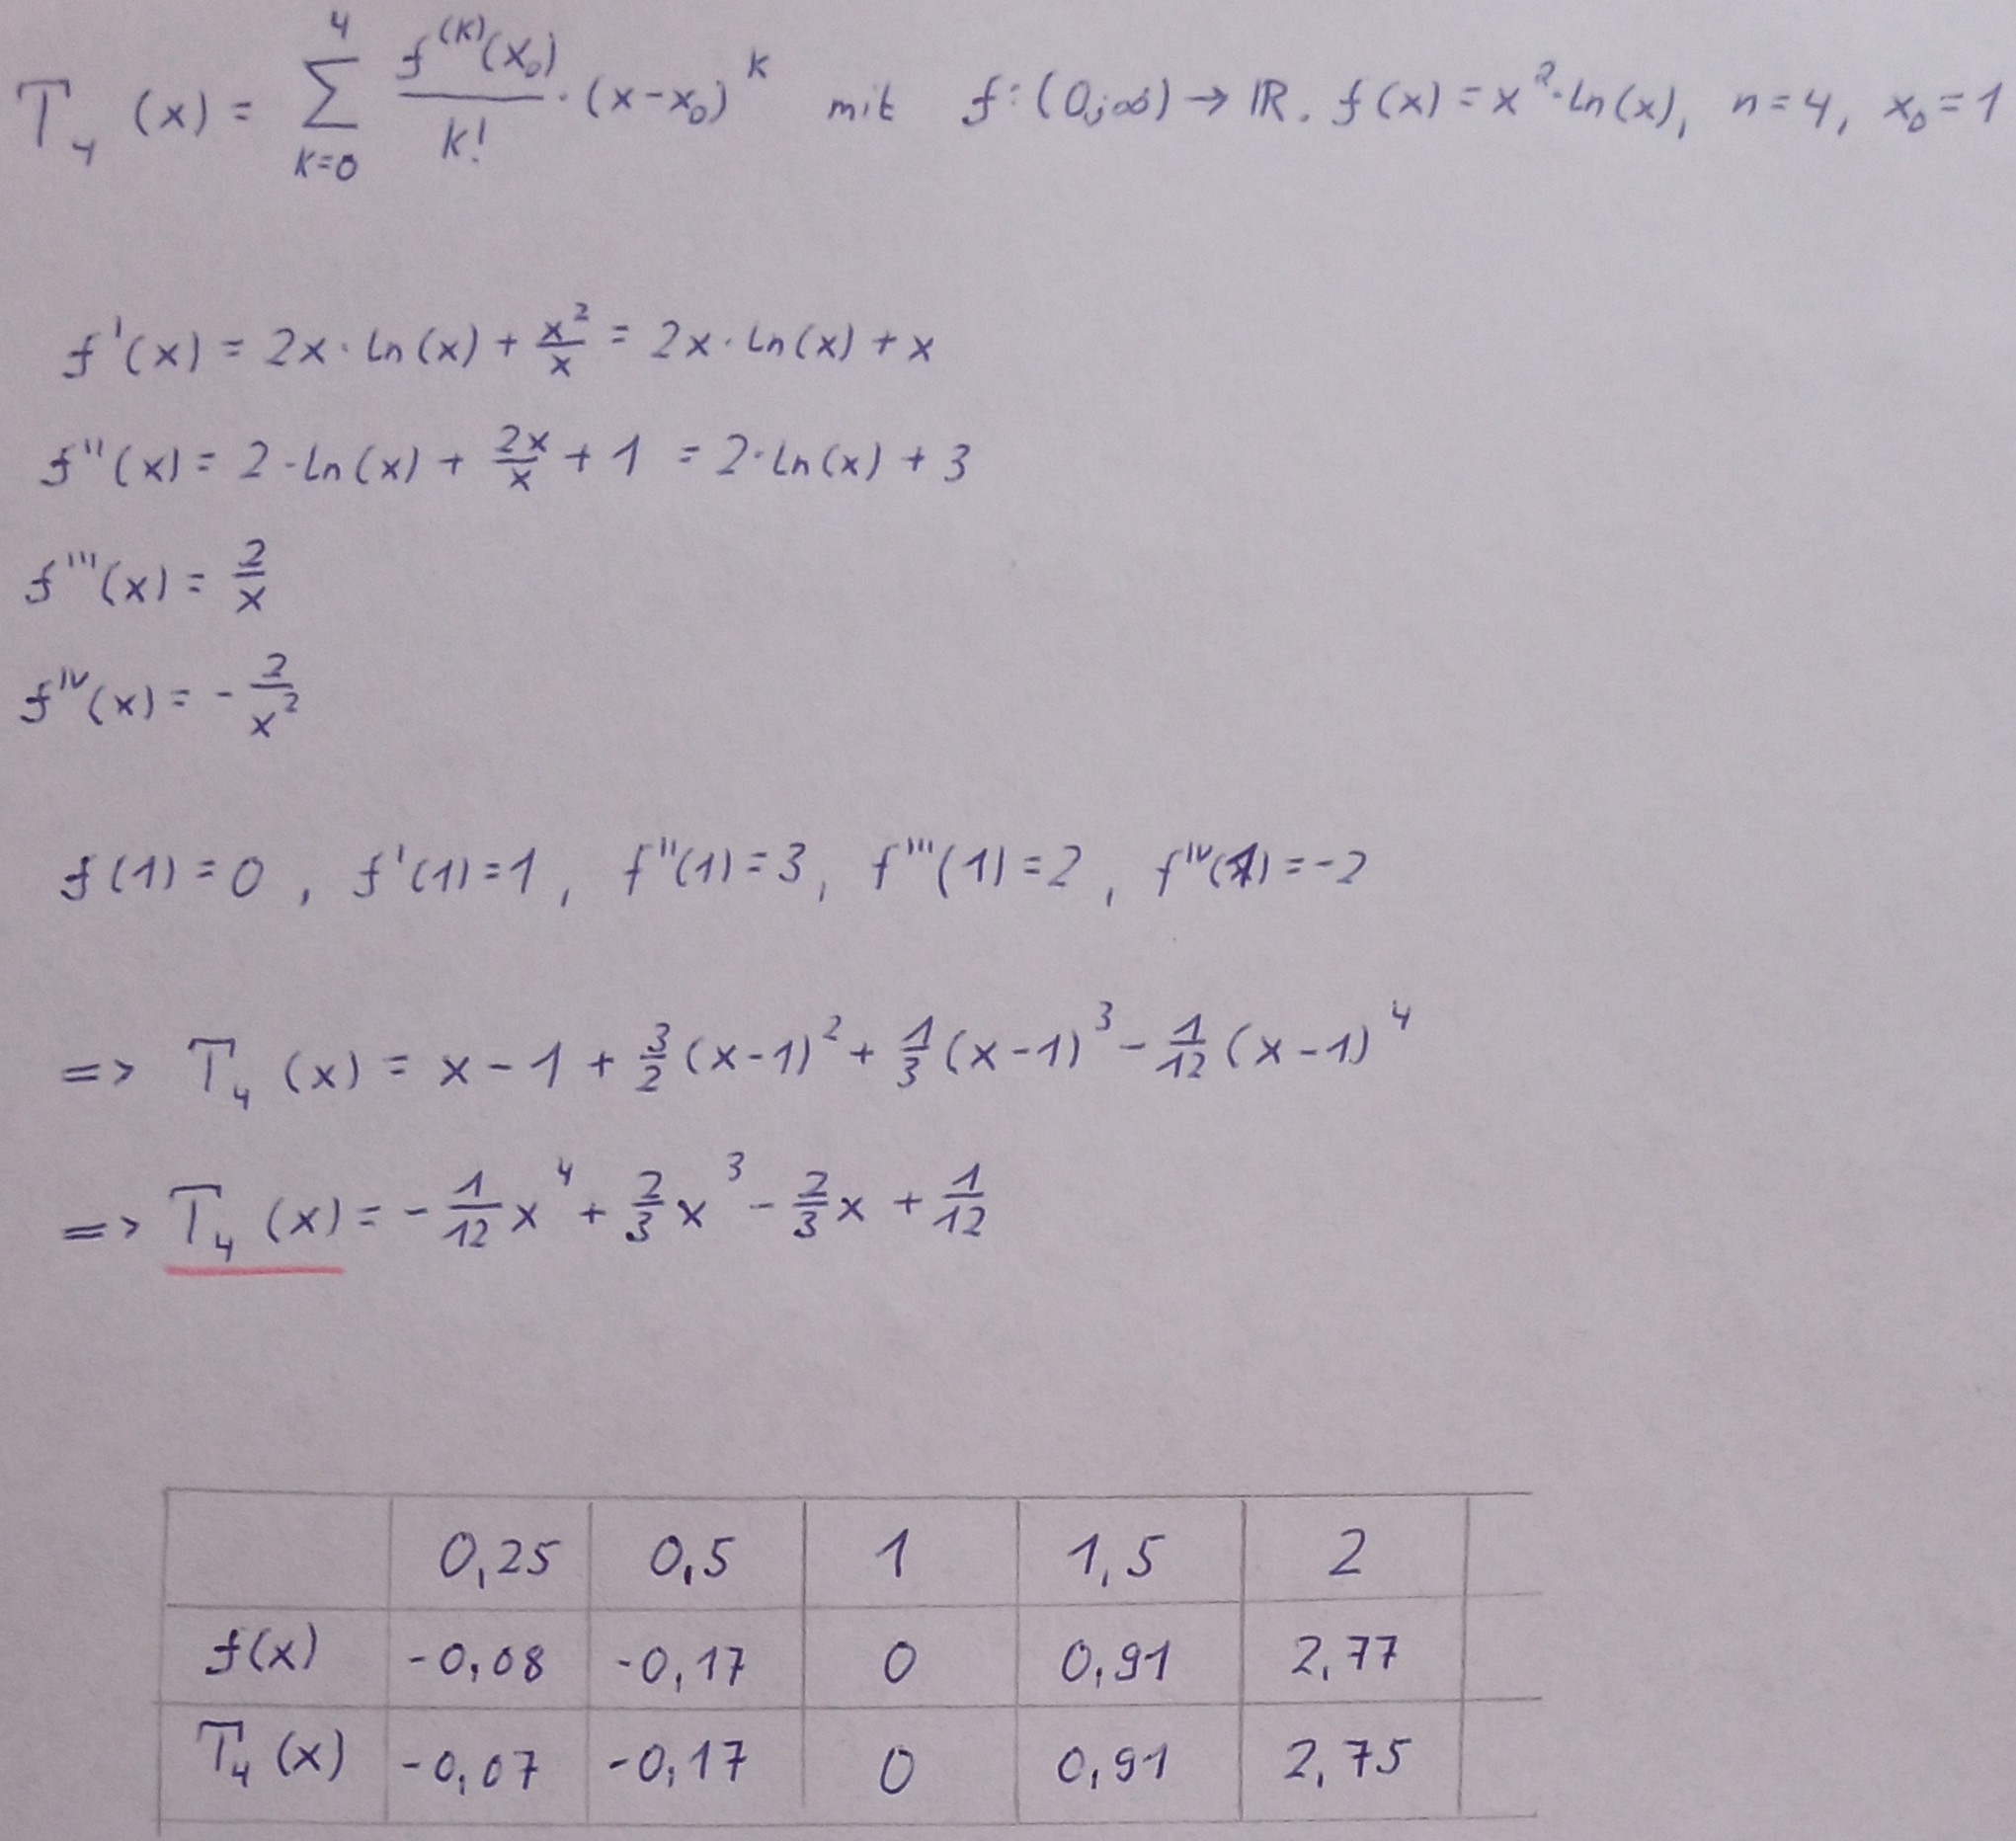 T₄(x) = ∑_{k=0}^{4} f^{(k)}(x₀)/k! · (x-x₀)^k mit f: (0;∞) → ℝ. f(x) = x²·ln(x), n=4, x₀=1
f'(x) = 2x·ln(x) + x²/x = 2x·ln(x) + x
f''(x) = 2·ln(x) + 2x/x + 1 = 2·ln(x) + 3
f'''(x) = 2/x
f^{IV}(x) = -2/x²
f(1)=0, f'(1)=1, f''(1)=3, f'''(1)=2, f^{IV}(1)=-2
=> T₄(x) = x-1 + 3/2(x-1)² + 1/3(x-1)³ - 1/12(x-1)⁴
=> T₄(x) = -1/12x⁴ + 2/3x³ - 2/3x + 1/12
0,25 0,5 1 1,5 2
f(x) -0,08 -0,17 0 0,91 2,77
T₄(x) -0,07 -0,17 0 0,91 2,75